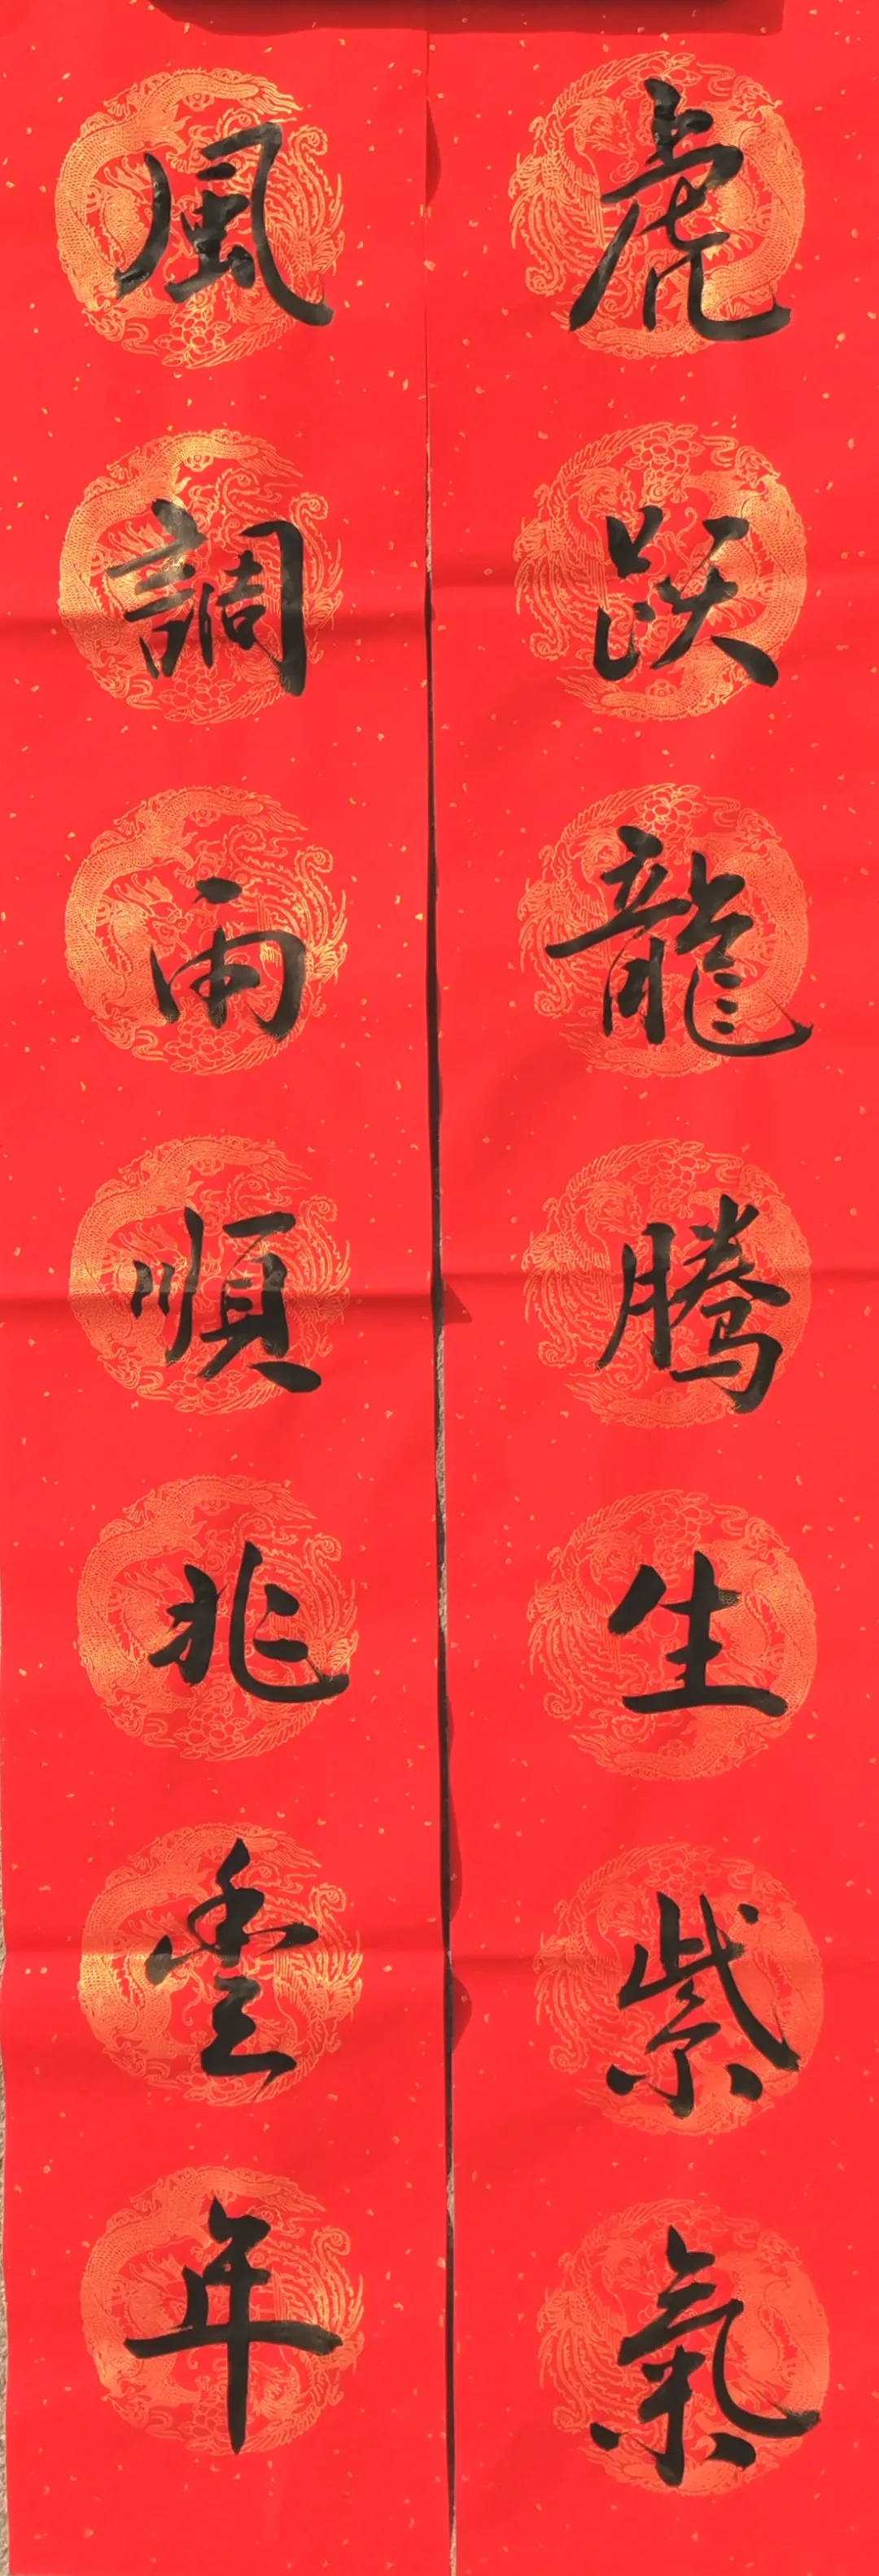 虎跃龍腾生紫氣
風調雨順兆豐年